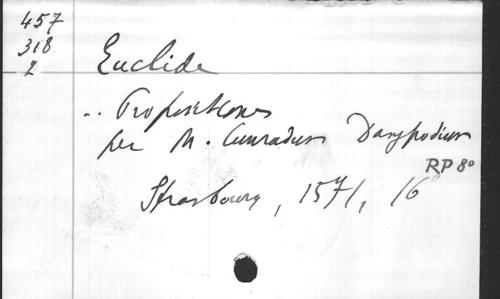 457
318
2
Euclide
.. Propositiones
per M. Cunradum Dasypodium
RP 8°
Strasbourg, 1571, 16°